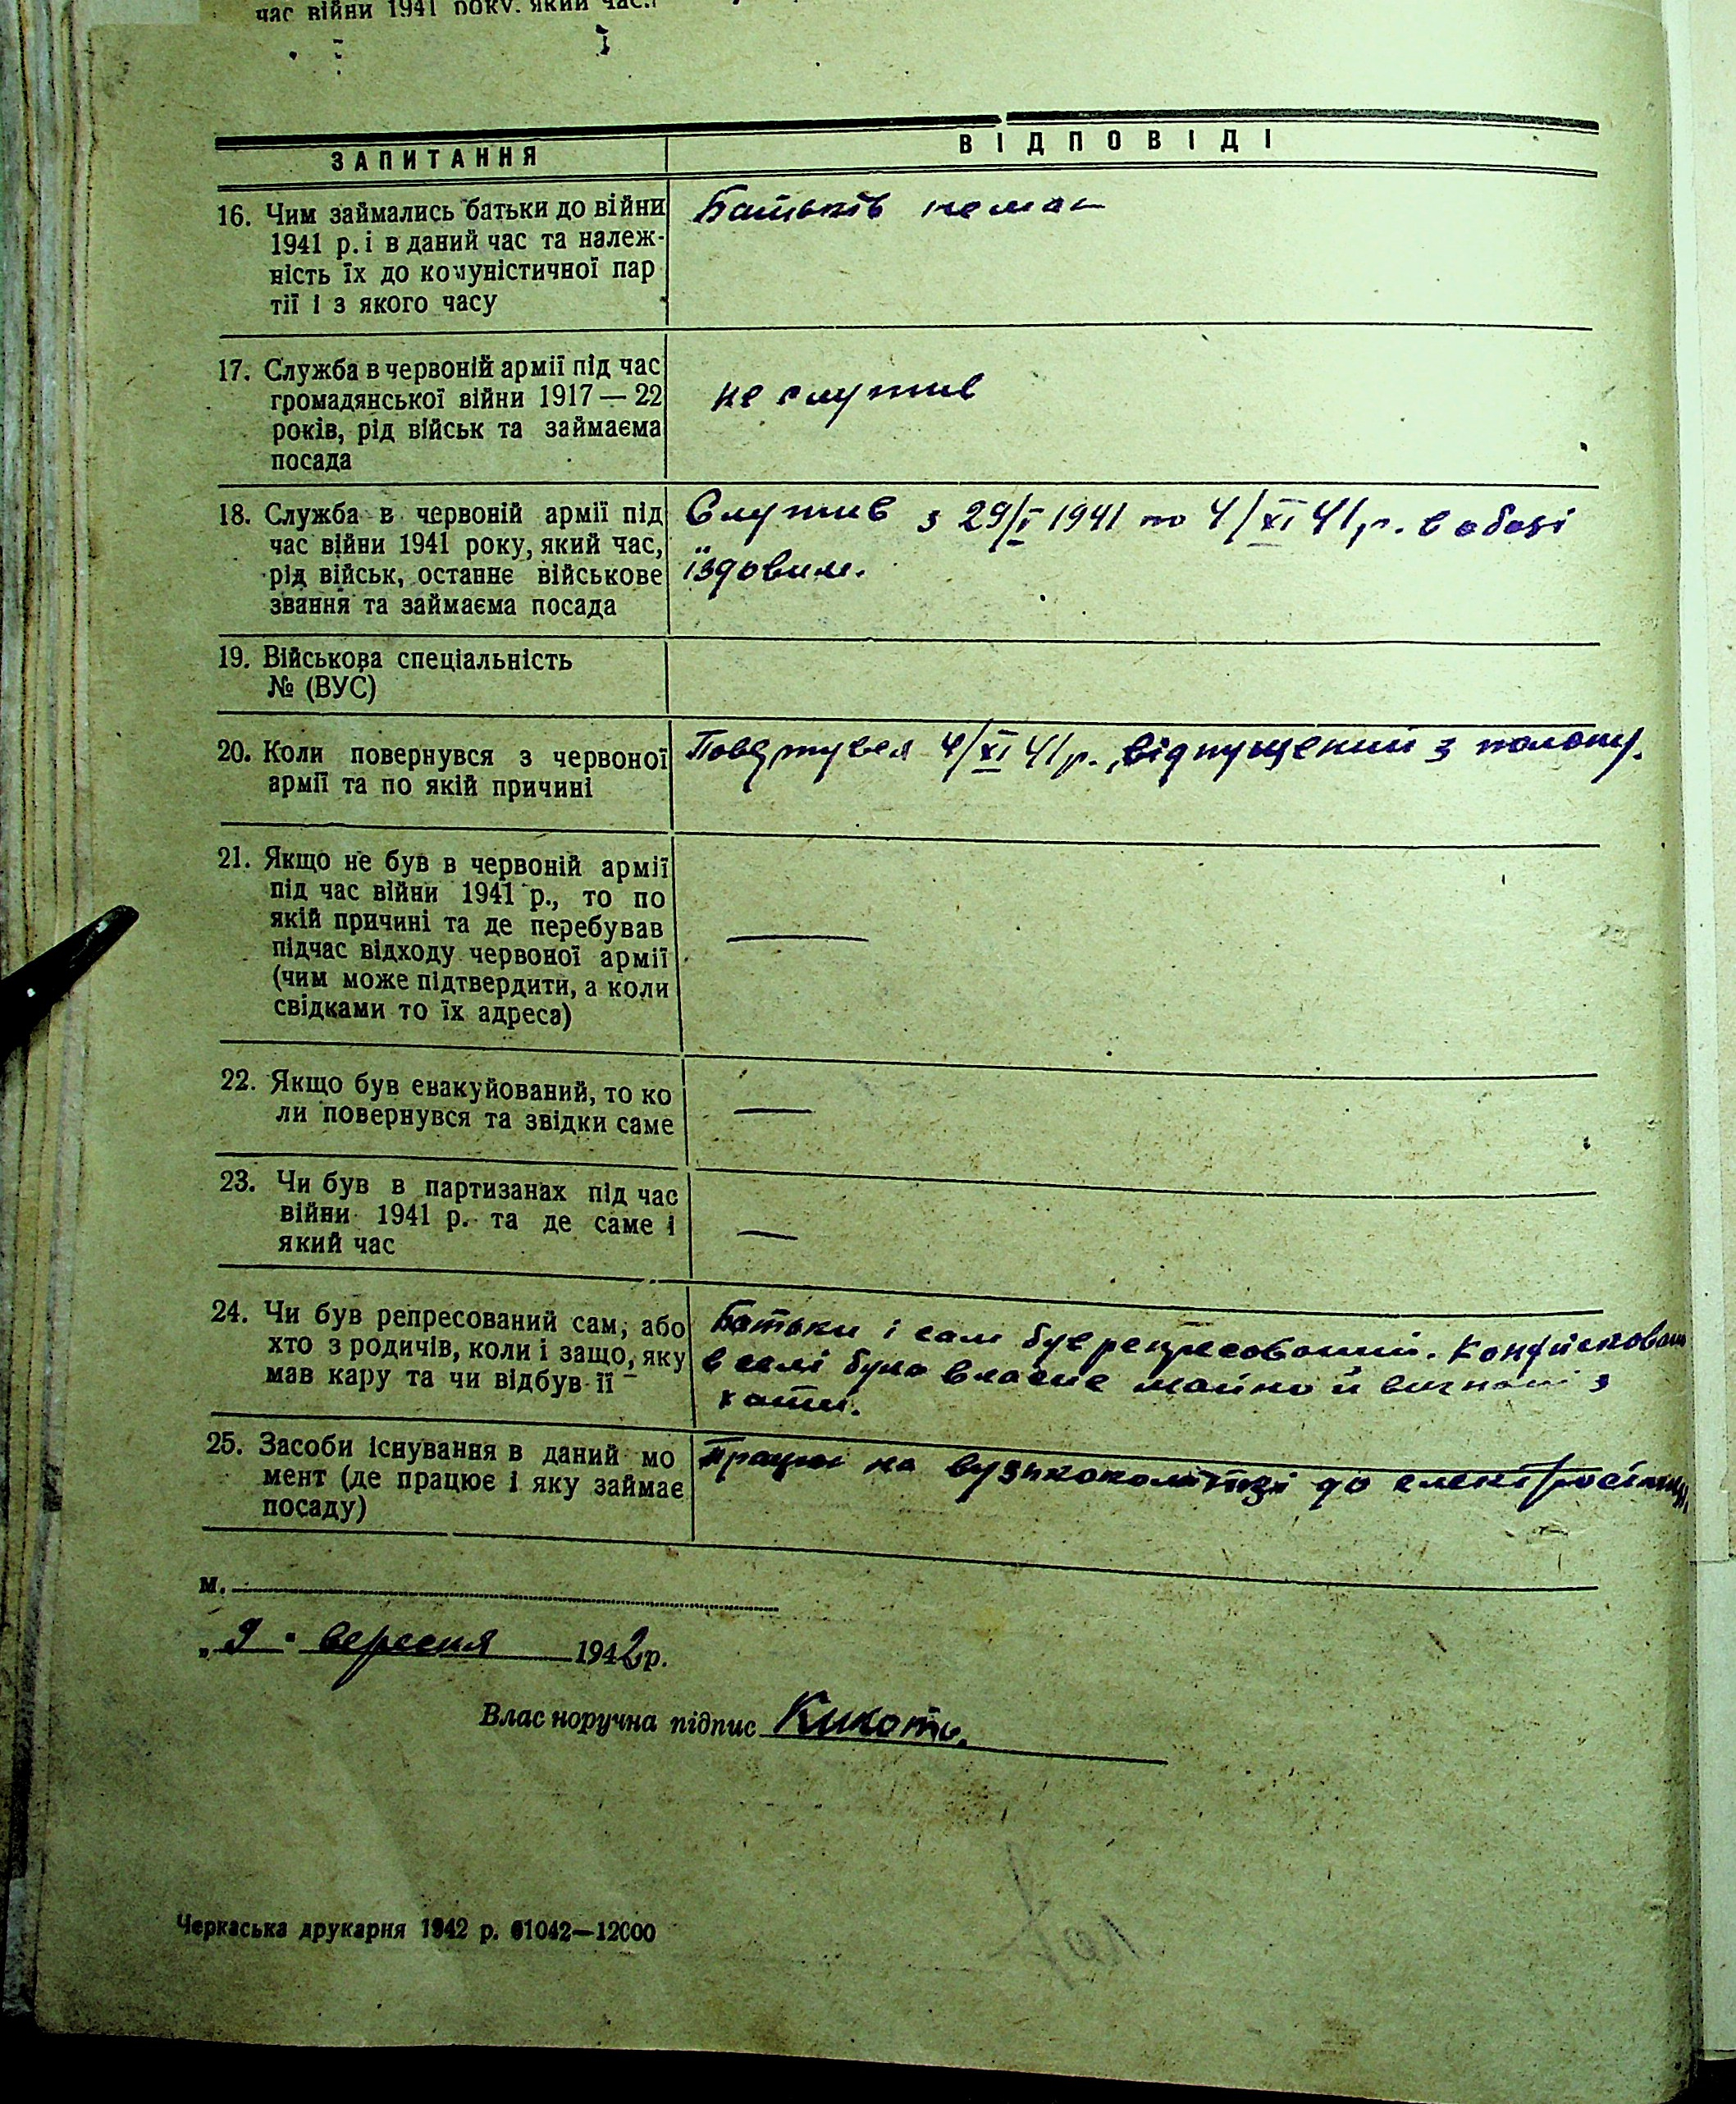 час війни 1941 року, який час,
ЗАПИТАННЯ
ВІДПОВІДІ
16. Чим займались батьки до війни
1941 р. і в даний час та належ-
ність їх до комуністичної пар
тії і з якого часу
Батьків немає
17. Служба в червоній армії під час
громадянської війни 1917 — 22
років, рід військ та займаєма
посада
не служив
18. Служба в червоній армії під
час війни 1941 року, який час,
рід військ, останнє військове
звання та займаєма посада
Служив з 29/V 1941 по 4/XI 41 р. в обозі
їздовим.
19. Військова спеціальність
№ (ВУС)
20. Коли повернувся з червоної
армії та по якій причині
Повернувся 4/XI 41 р., відпущений з полону.
21. Якщо не був в червоній армії
під час війни 1941 р., то по
якій причині та де перебував
підчас відходу червоної армії
(чим може підтвердити, а коли
свідками то їх адреса)
—
22. Якщо був евакуйований, то ко
ли повернувся та звідки саме
—
23. Чи був в партизанах під час
війни 1941 р. та де саме і
який час
—
24. Чи був репресований сам, або
хто з родичів, коли і защо, яку
мав кару та чи відбув її
Батьки і сам був репресований. Конфісковано
в селі було власне майно й вигнані з
хати.
25. Засоби існування в даний мо
мент (де працює і яку займає
посаду)
Працюю на вузькоколійці до електростанції,
м.
„ 9 " вересня 1942 р.
Власноручна підпис Кикоть.
Черкаська друкарня 1942 р. 61042—12000